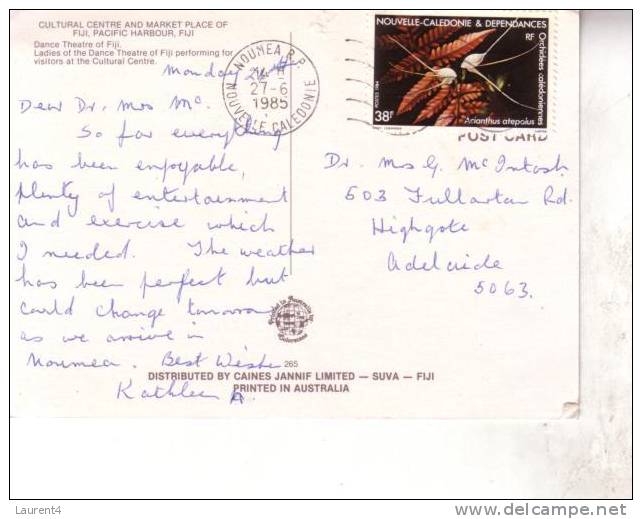 CULTURAL CENTRE AND MARKET PLACE OF
FIJI, PACIFIC HARBOUR, FIJI
Dance Theatre of Fiji.
Ladies of the Dance Theatre of Fiji performing for
visitors at the Cultural Centre.
Monday
Dear Dr, Mrs Mc.
So far everything
has been enjoyable,
plenty of entertainment
and exercise which
I needed. The weather
has been perfect but
could change tomorrow
as we arrive in
Noumea. Best Wishe
Kathleen A.
NOUMEA R.P.
27-6
1985
NOUVELLE CALEDONIE
NOUVELLE-CALEDONIE & DEPENDANCES
RF
Orchidées calédoniennes
POSTES 1984
38F
Acianthus atepalus
POST CARD
Dr. Mrs G. McIntosh
503 Fullarton Rd.
Highgate
Adelaide
5063.
Printed in Australia by
265
DISTRIBUTED BY CAINES JANNIF LIMITED — SUVA — FIJI
PRINTED IN AUSTRALIA
Laurent4